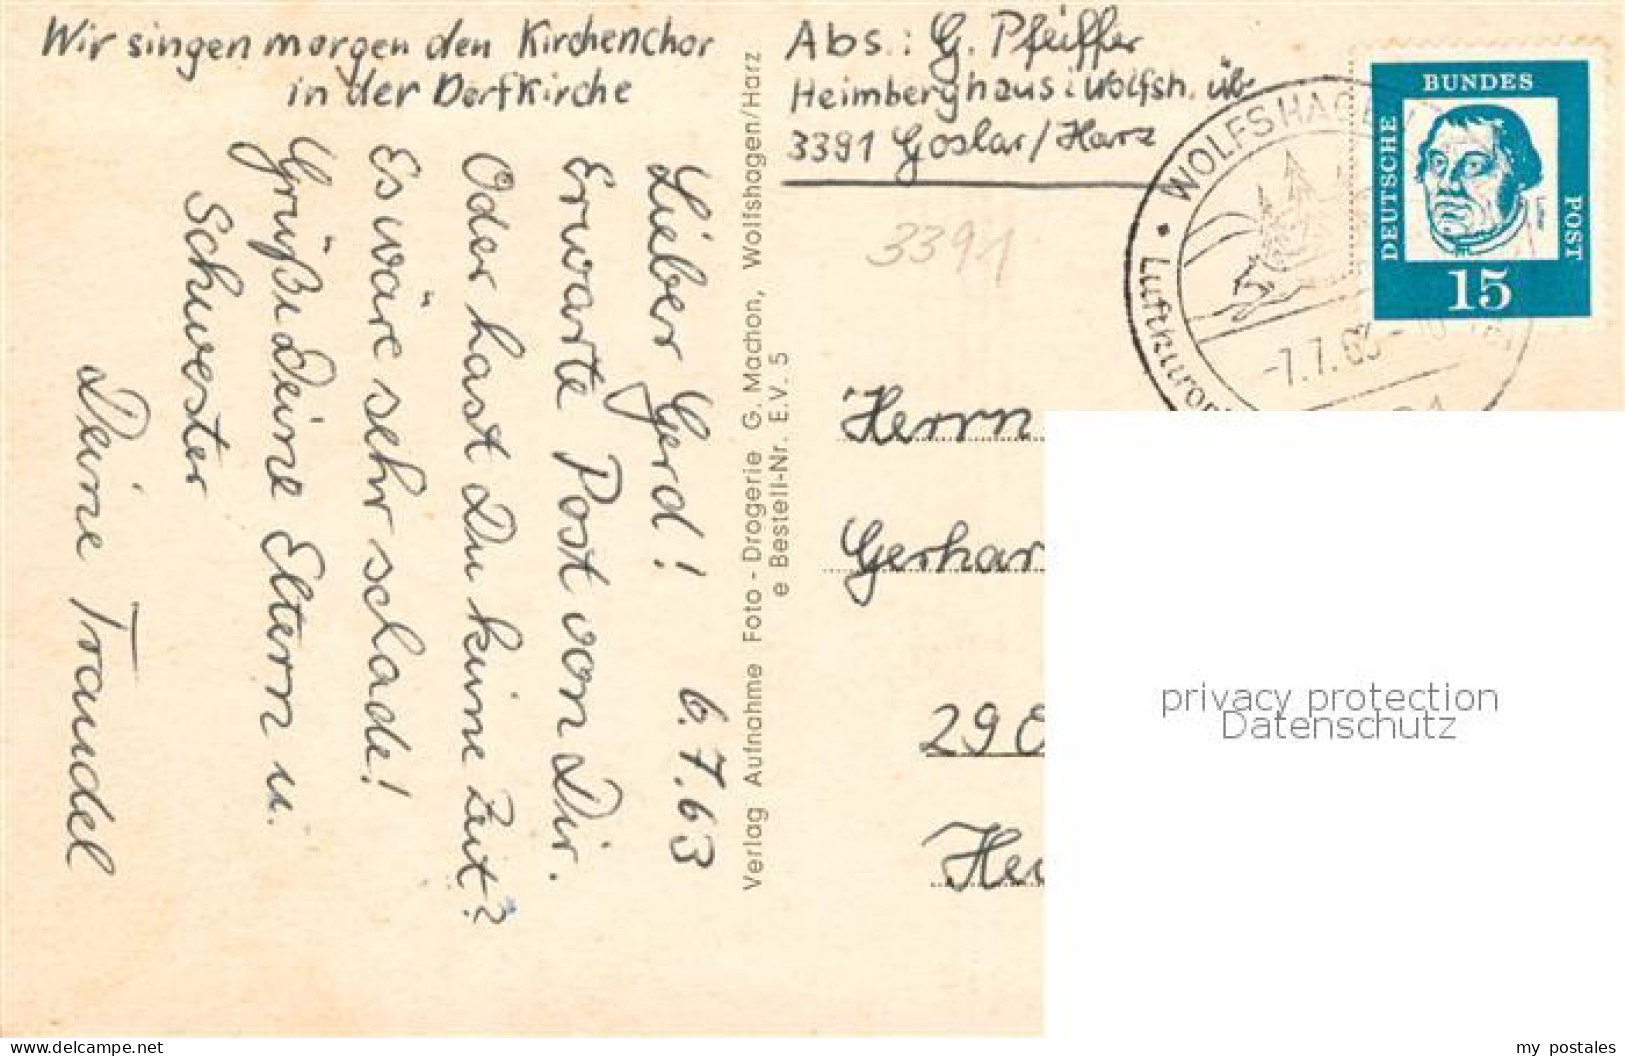 Wir singen morgen den Kirchenchor
in der Dorfkirche
Lieber Gerd! 6.7.63
Erwarte Post von Dir.
Oder hast Du keine Zeit?
Es wäre sehr schade!
Grüße Deine Eltern u.
Schwester
Deine Traudel
Verlag Aufnahme Foto-Drogerie G. Machon, Wolfshagen/Harz
e Bestell-Nr. E.V. 5
Abs.: G. Pfeiffer
Heimberghaus i. Wolfsh. üb.
3391 Goslar/Harz
3391
WOLFSHAGEN
Luftkuror
-7.7.63-10
DEUTSCHE
BUNDES
POST
15
Herrn
Gerhar
29 O
Hei
privacy protection
Datenschutz
www.delcampe.net
my_postales